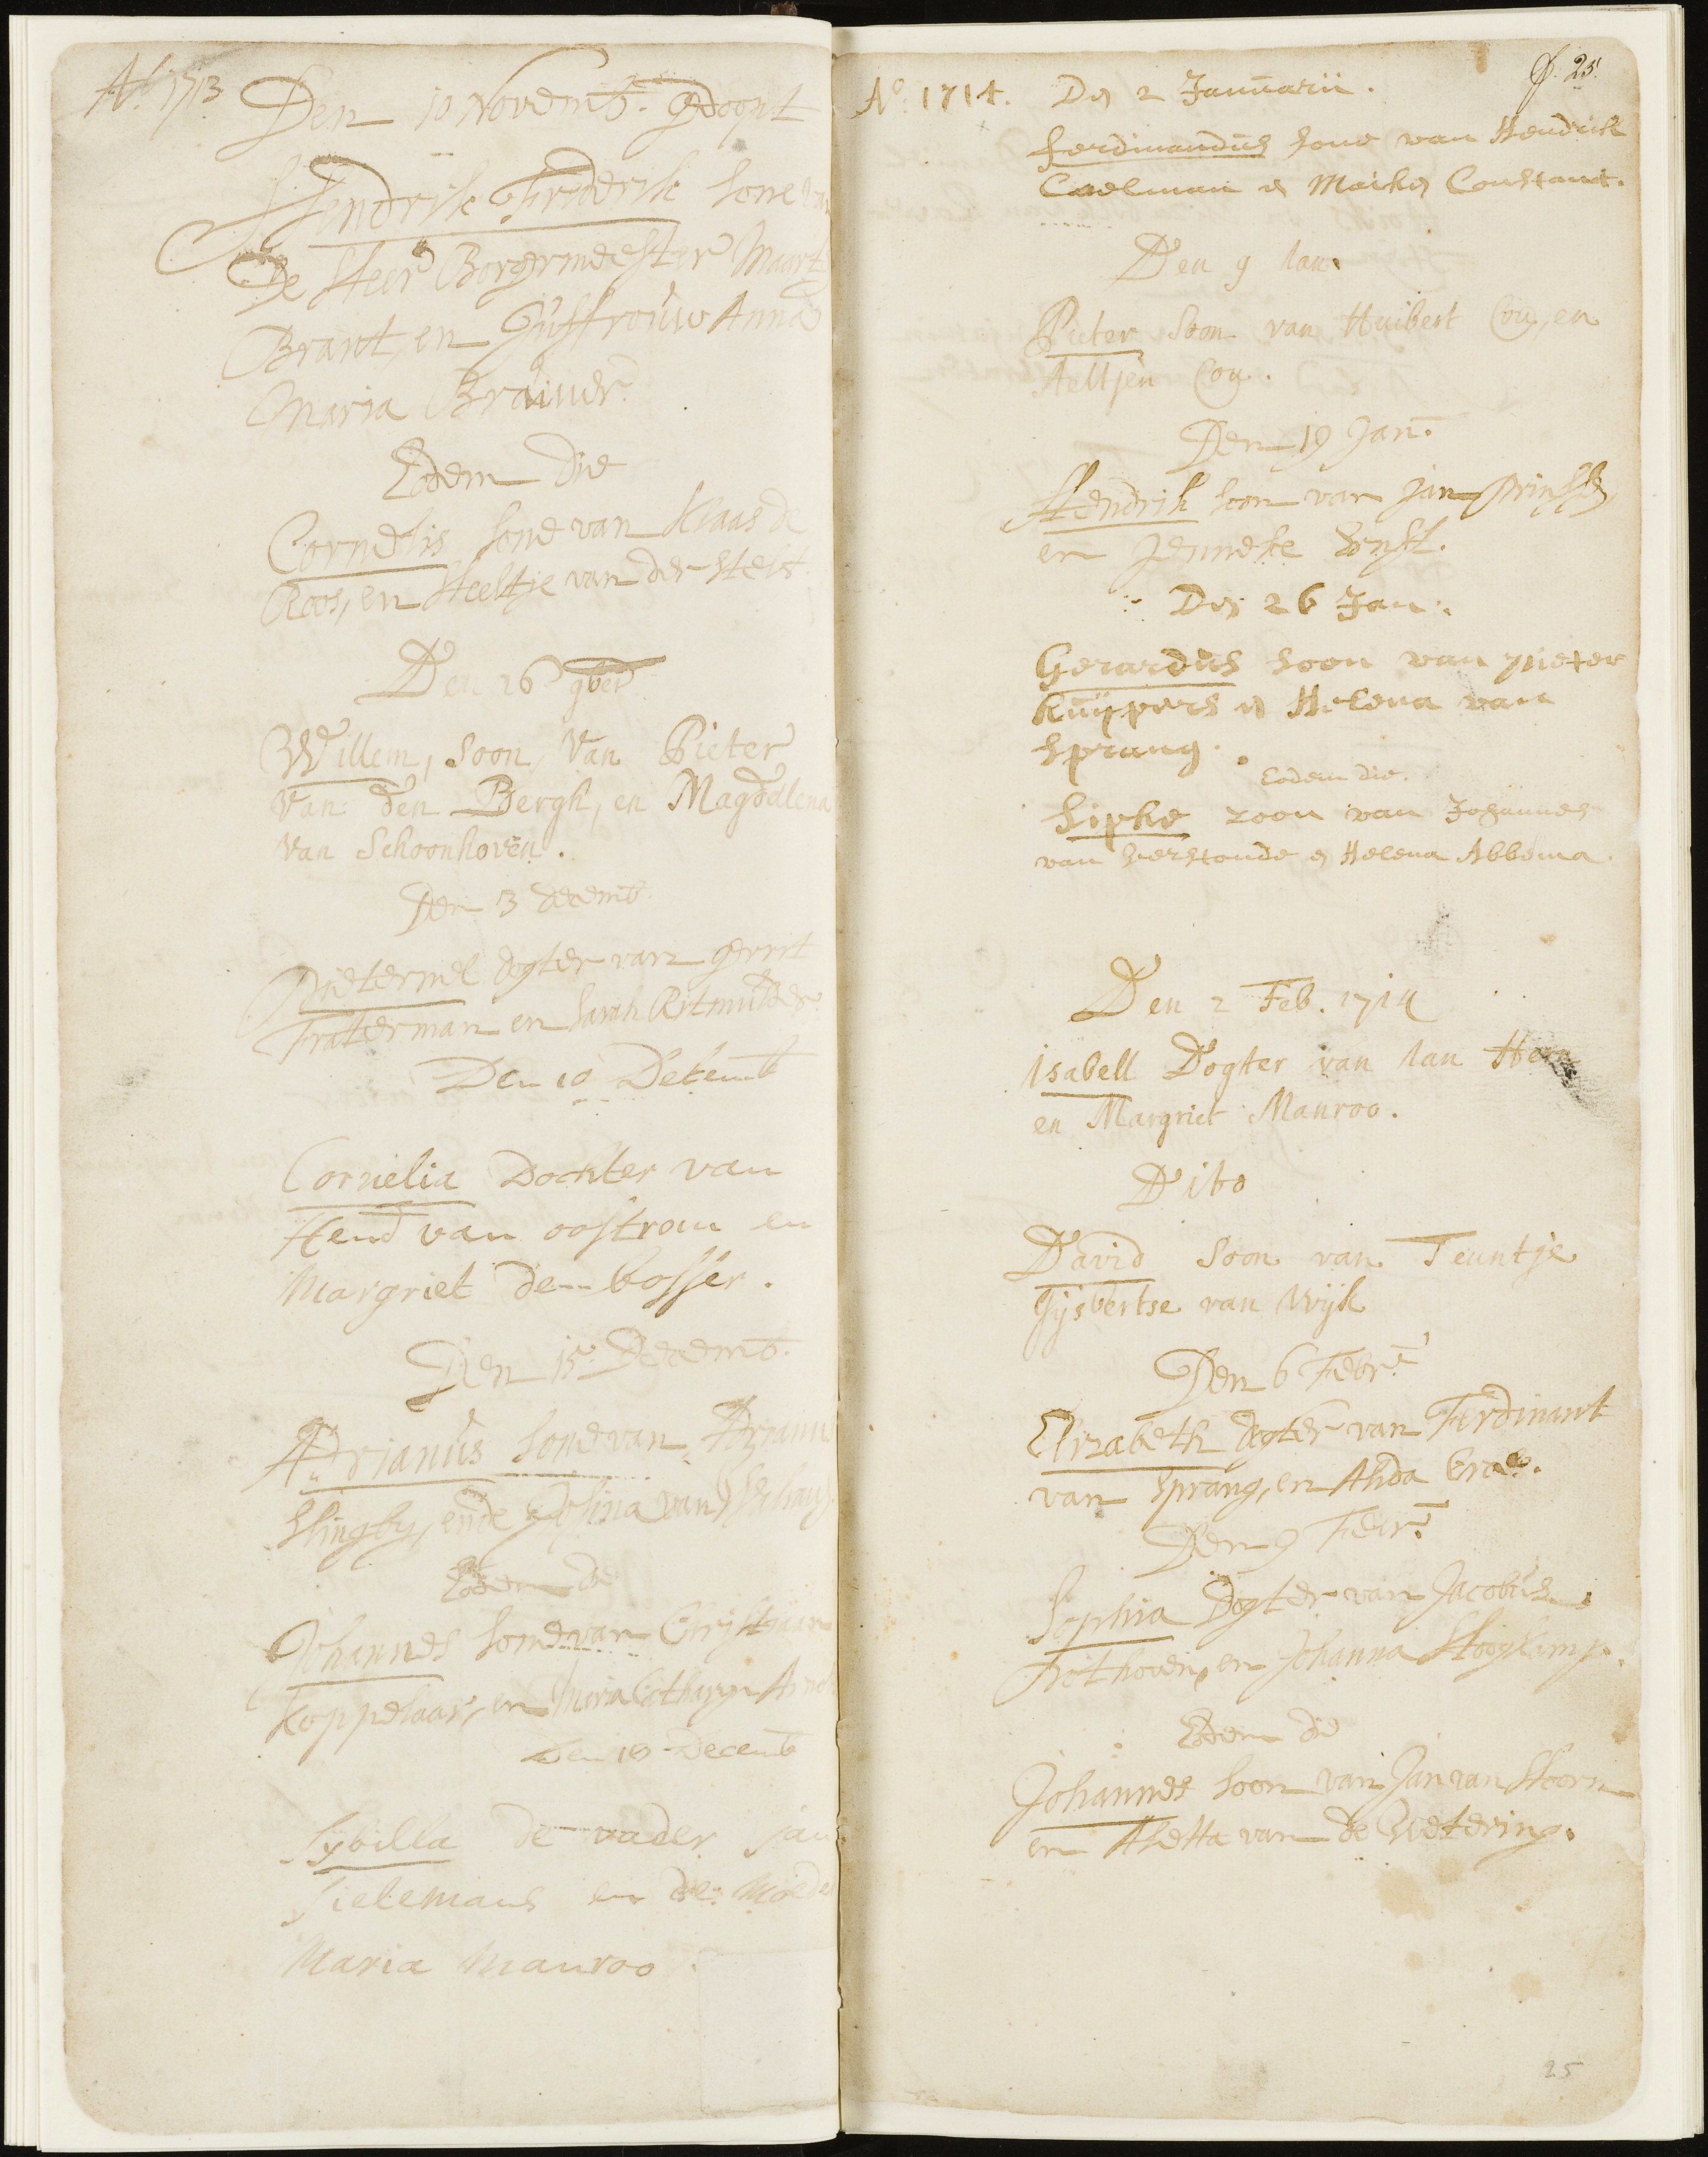 Ao 1713
Den 10 Novemb. gedoopt
Hendrik Friderik sone van
De Heer Borgermeester Maart
Brant, en Juffrouw Anna
Maria Brauwer.
Eodem die
Cornelis sone van Klaas de
Roos, en Neeltje van der Helst
Den 26 9ber
Willem, Soon, Van Pieter
Van den Bergh, en Magdelena
Van Schoonhoven.
Den 3 decemb
Pieternel dogter van gerrit
Fratterman en Sarah
Den 10 Decemb
Cornelia Dochter van
Hend van oostrom en
Margriet den bosser.
Den 15 Decemb.
Adrianus sone van Adrianus
Slingby, ende Josina van
Eodem die
Johannes sone van Christiaan
Koppelaar, en Maria Catharyn
Den 18 Decemb
Sybilla de vader Jan
Tielemans en de: Moeder
Maria Manroo.
Ao. 1714. Den 2 Januarii.
f. 25.
Ferdinandus sone van Hendrik
Coelman en Maike Constant.
Den 9 Ian.
Pieter Soon van Huibert Cou, en
Aeltjen Cou.
Den 19 Jan.
Hendrik soon van Jan
en Jenneke
Den 26 Jan.
Gerardus soon van pieter
Kuypers en Helena van
Sprang.
Eodem die.
Sipke zoon van Johannes
van Helena Abbema.
Den 2 Feb. 1714
Isabell Dogter van Ian
en Margriet Manroo.
Dito
David Soon van Teuntje
Gijsbertse van Wijk
Den 6 Febr.
Elizabeth dogter van Ferdinant
van Sprang, en Alida
Den 9 Febr.
Sophia Dogter van Jacobus
en Johanna Hooykamp.
Eodem die
Johannes soon van Jan van Hoorn
en Aletta van de Wetering.
25